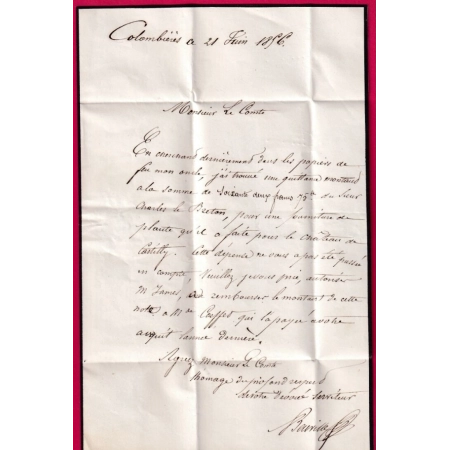 Colombières a 21 Juin 1856.
Monsieur Le Comte
En examinant dernièrement dans les papiers de
feu mon oncle, j'ai trouvé une quittance montant
a la somme de soixante deux francs 75c du sieur
Charles le Breton, pour une fourniture de
plante qu'il a faite pour le chateau de
Cette dépense ne vous a pas été passée
en compte Veuillez je vous prie, autoriser
Mr James, a rembourser le montant de cette
note a Mr qui l'a payé a votre
acquit l'année dernière.
Agréez Monsieur le Comte
l'homage du profond respect
de votre dévoué serviteur